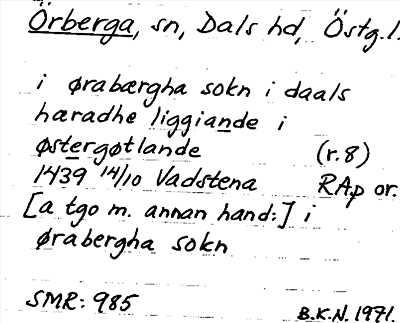 Örberga, sn, Dals hd, Östg.l.
i ørabærgha sokn i daals
hæradhe liggiande i
østergøtlande (r.8)
1439 14/10 Vadstena RAp or.
[a tgo m. annan hand:] i
ørabergha sokn
SMR: 985 B.K.N. 1971.